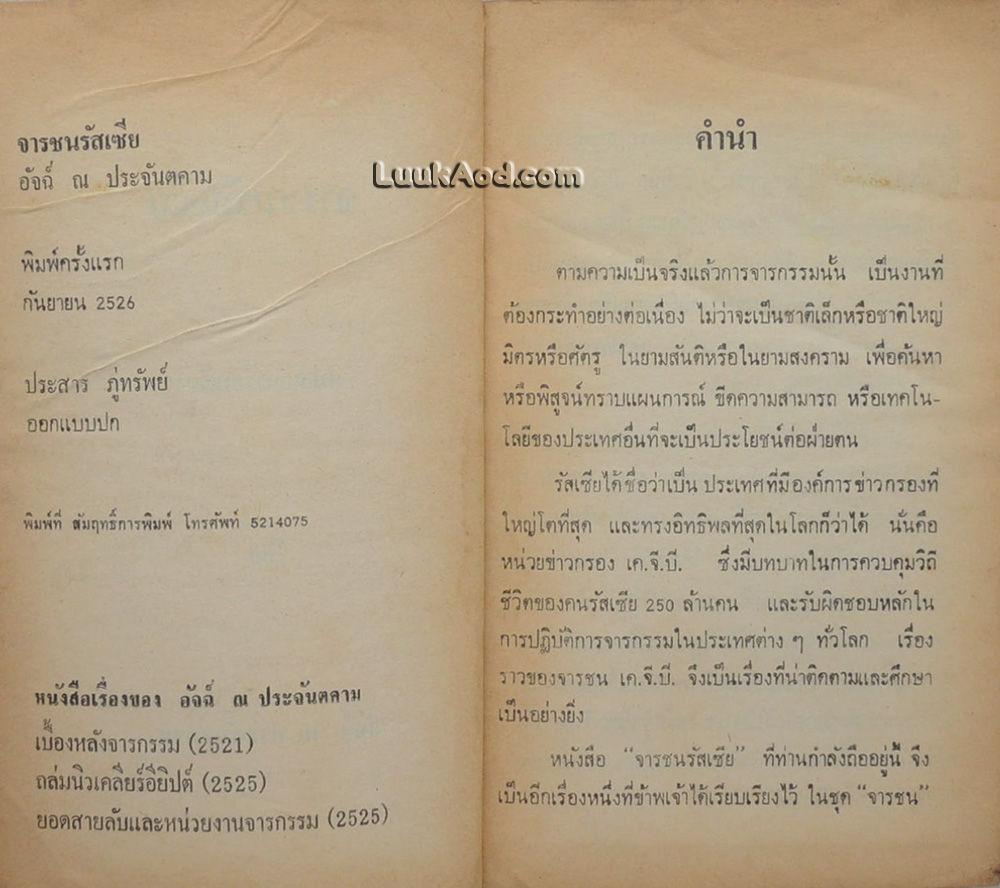 จารชนรัสเซีย
อัจฉ์ ณ ประจันตคาม
พิมพ์ครั้งแรก
กันยายน 2526
ประสาร ภู่ทรัพย์
ออกแบบปก
พิมพ์ที่ สัมฤทธิ์การพิมพ์ โทรศัพท์ 5214075
หนังสือเรื่องของ อัจฉ์ ณ ประจันตคาม
เบื้องหลังจารกรรม (2521)
ถล่มนิวเคลียร์อียิปต์ (2525)
ยอดสายลับและหน่วยงานจารกรรม (2525)
LuukAod.com
คำนำ
ตามความเป็นจริงแล้วการจารกรรมนั้น เป็นงานที่
ต้องกระทำอย่างต่อเนื่อง ไม่ว่าจะเป็นชาติเล็กหรือชาติใหญ่
มิตรหรือศัตรู ในยามสันติหรือในยามสงคราม เพื่อค้นหา
หรือพิสูจน์ทราบแผนการณ์ ขีดความสามารถ หรือเทคโน-
โลยีของประเทศอื่นที่จะเป็นประโยชน์ต่อฝ่ายตน
รัสเซียได้ชื่อว่าเป็น ประเทศที่มีองค์การข่าวกรองที่
ใหญ่โตที่สุด และทรงอิทธิพลที่สุดในโลกก็ว่าได้ นั่นคือ
หน่วยข่าวกรอง เค.จี.บี. ซึ่งมีบทบาทในการควบคุมวิถี
ชีวิตของคนรัสเซีย 250 ล้านคน และรับผิดชอบหลักใน
การปฏิบัติการจารกรรมในประเทศต่าง ๆ ทั่วโลก เรื่อง
ราวของจารชน เค.จี.บี. จึงเป็นเรื่องที่น่าติดตามและศึกษา
เป็นอย่างยิ่ง
หนังสือ "จารชนรัสเซีย" ที่ท่านกำลังถืออยู่นี้ จึง
เป็นอีกเรื่องหนึ่งที่ข้าพเจ้าได้เรียบเรียงไว้ ในชุด "จารชน"